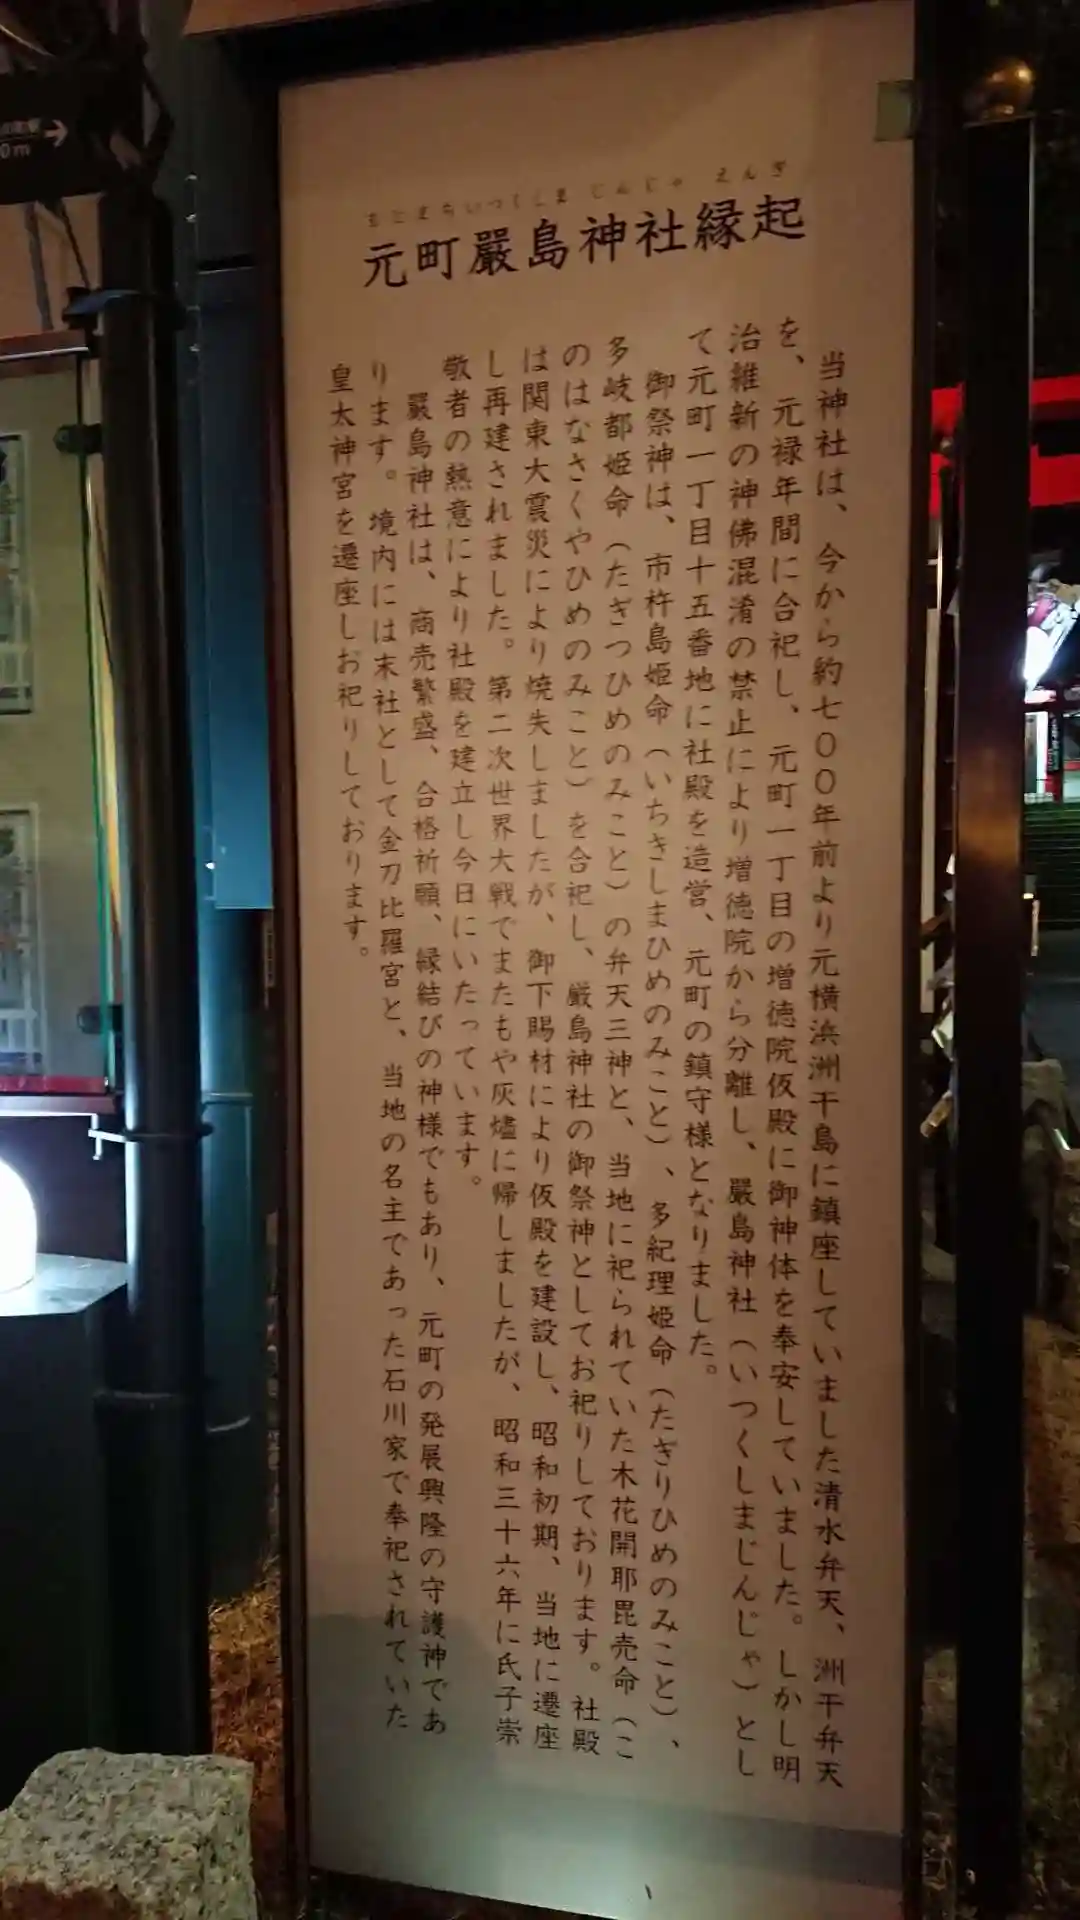 もとまちいつくしま じんじゃ えんぎ
元町嚴島神社縁起
当神社は、今から約七〇〇年前より元横浜洲干島に鎮座していました清水弁天、洲干弁天
を、元禄年間に合祀し、元町一丁目の増徳院仮殿に御神体を奉安していました。しかし明
治維新の神佛混淆の禁止により増徳院から分離し、嚴島神社（いつくしまじんじゃ）とし
て元町一丁目十五番地に社殿を造営、元町の鎮守様となりました。
御祭神は、市杵島姫命（いちきしまひめのみこと）、多紀理姫命（たぎりひめのみこと）、
多岐都姫命（たぎつひめのみこと）の弁天三神と、当地に祀られていた木花開耶毘売命（こ
のはなさくやひめのみこと）を合祀し、厳島神社の御祭神としてお祀りしております。社殿
は関東大震災により焼失しましたが、御下賜材により仮殿を建設し、昭和初期、当地に遷座
し再建されました。第二次世界大戦でまたもや灰燼に帰しましたが、昭和三十六年に氏子崇
敬者の熱意により社殿を建立し今日にいたっています。
嚴島神社は、商売繁盛、合格祈願、縁結びの神様でもあり、元町の発展興隆の守護神であ
ります。境内には末社として金刀比羅宮と、当地の名主であった石川家で奉祀されていた
皇太神宮を遷座しお祀りしております。
0m